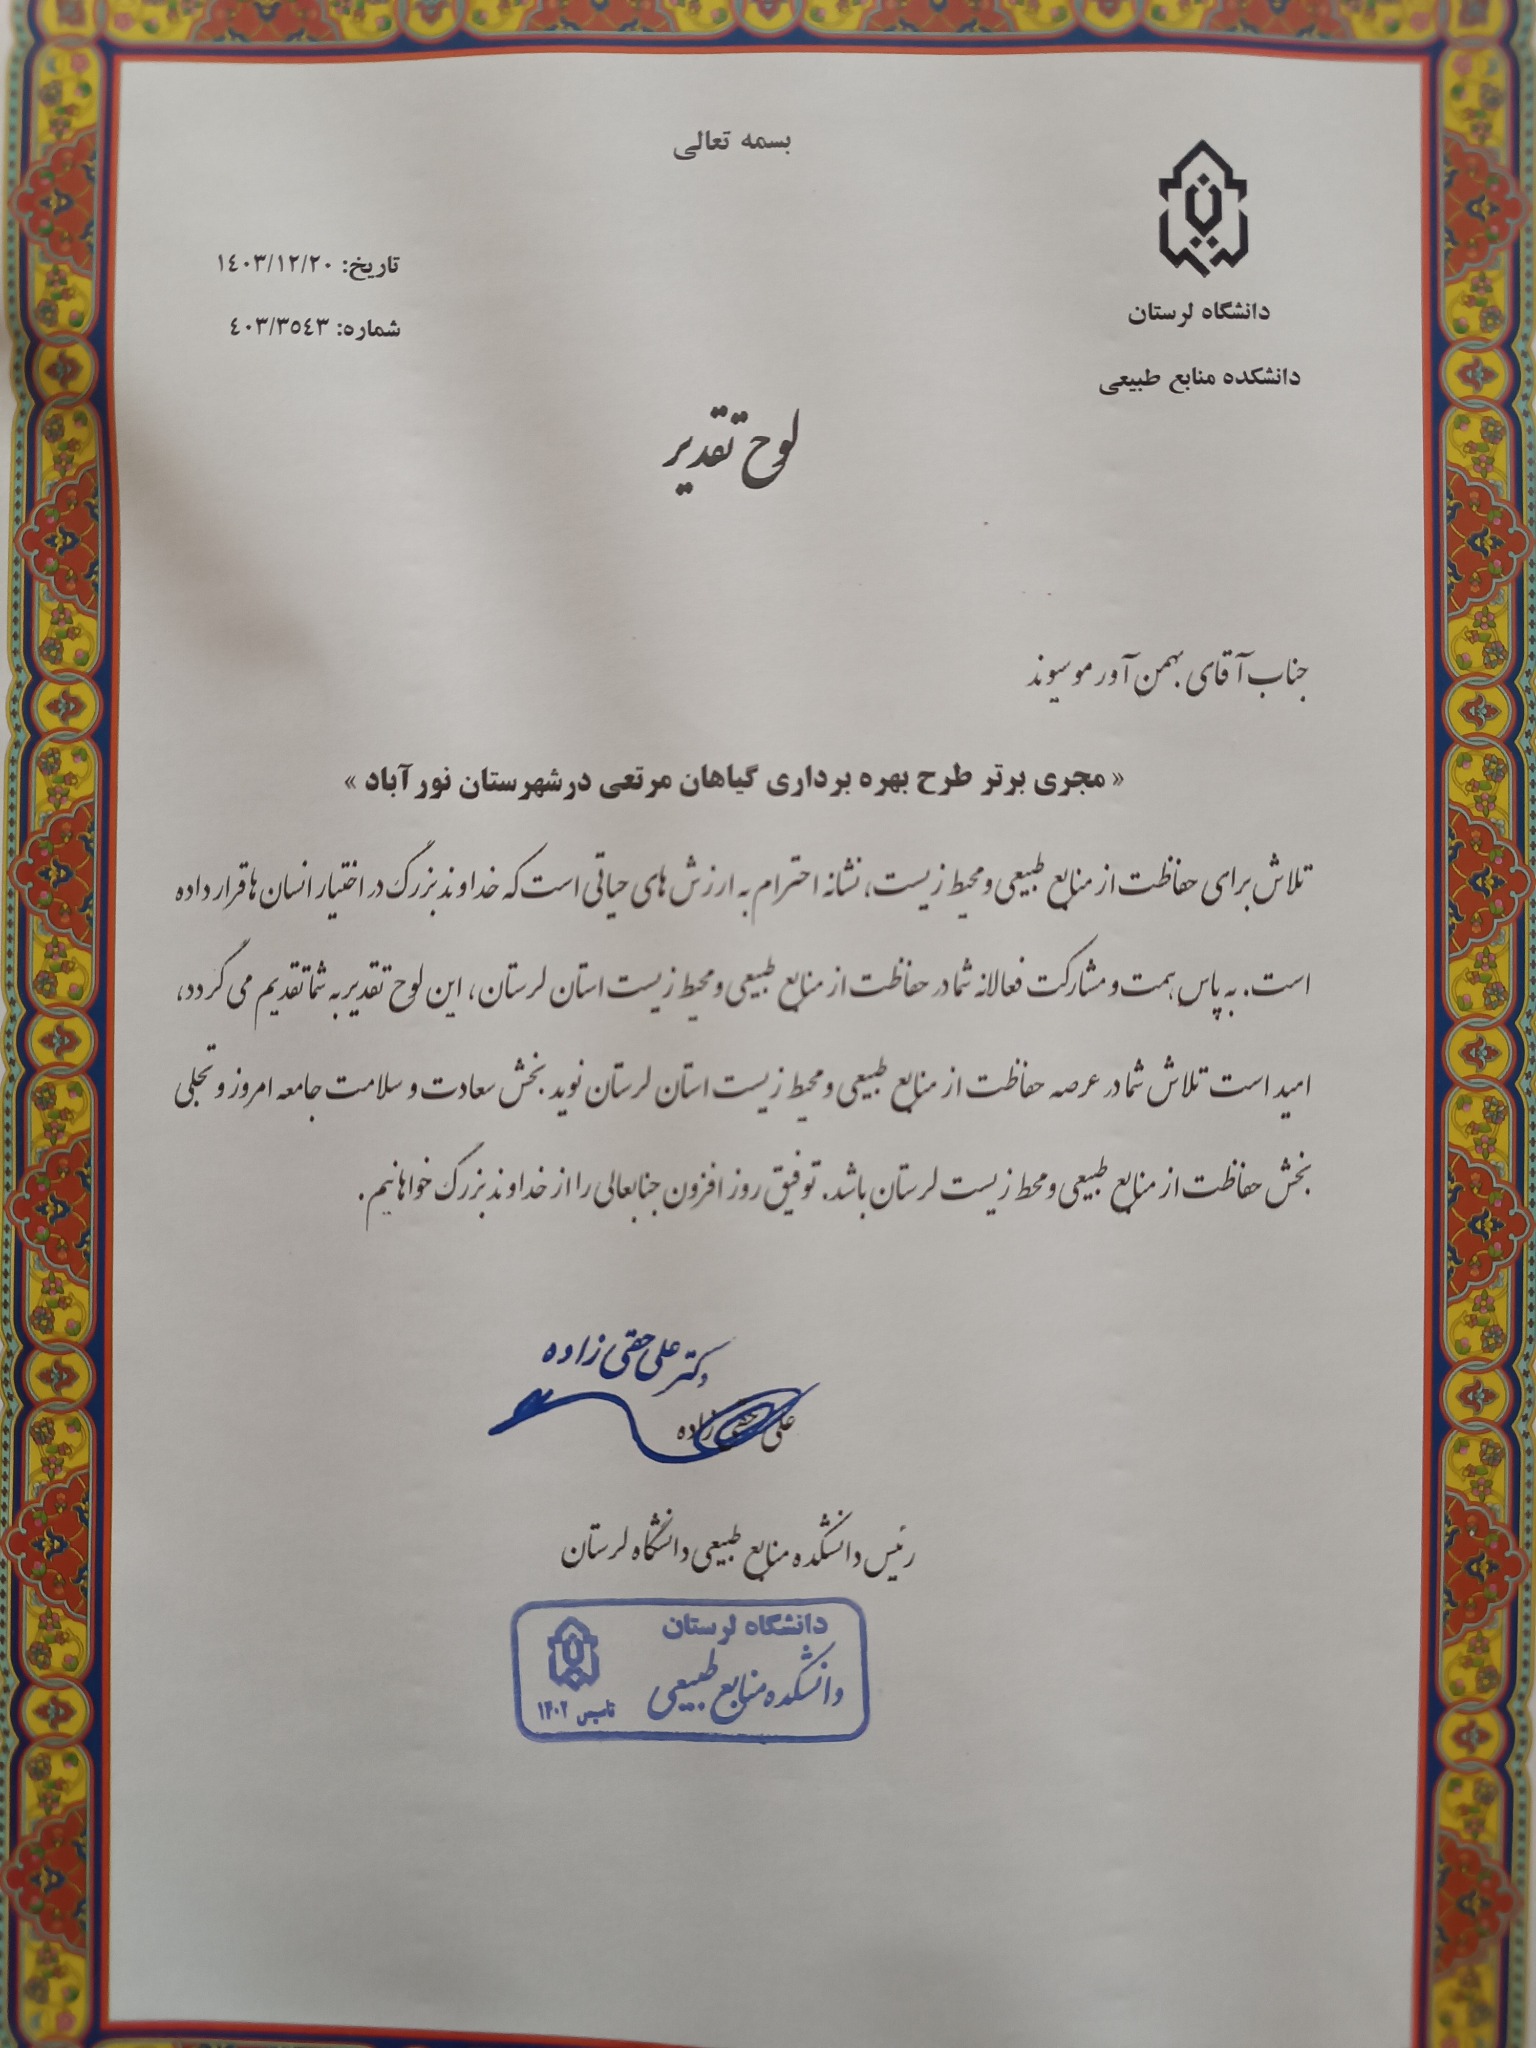 بسمه تعالی
دانشگاه لرستان
دانشکده منابع طبیعی
تاریخ: ١٤٠٣/١٢/٢٠
شماره: ٤٠٣/٣٥٤٣
لوح تقدیر
جناب آقای بهمن آور موسیوند
« مجری برتر طرح بهره برداری گیاهان مرتعی درشهرستان نورآباد »
تلاش برای حفاظت از منابع طبیعی و محیط زیست، نشانه احترام به ارزش های حیاتی است که خداوند بزرگ در اختیار انسان ها قرار داده
است. به پاس همت و مشارکت فعالانه شما در حفاظت از منابع طبیعی و محیط زیست استان لرستان، این لوح تقدیر به شما تقدیم می گردد،
امید است تلاش شما در عرصه حفاظت از منابع طبیعی و محیط زیست استان لرستان نوید بخش سعادت و سلامت جامعه امروز و تجلی
بخش حفاظت از منابع طبیعی و محط زیست لرستان باشد. توفیق روز افزون جنابعالی را از خداوند بزرگ خواهانیم.
دکتر علی حقی زاده
علی حقی زاده
رئیس دانشکده منابع طبیعی دانشگاه لرستان
دانشگاه لرستان
دانشکده منابع طبیعی
تاسیس ۱۴۰۲